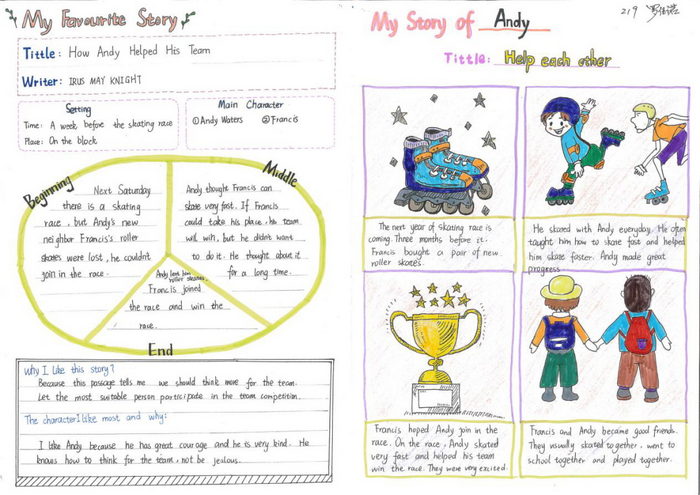 My Favourite Story
Tittle: How Andy Helped His Team
Writer: IRUS MAY KNIGHT
Setting
Time: A week before the skating race
Place: On the block
Main Character
①Andy Waters ②Francis
Beginning
Next Saturday
there is a skating
race, but Andy's new
neighbor Francis's roller
skates were lost, he couldn't
join in the race.
Middle
Andy thought Francis can
skate very fast. If Francis
could take his place, his team
will win, but he didn't want
to do it. He thought about it
for a long time.
Andy lent him
roller skates.
Francis joined
the race and win the
race.
End
Why I like this story?
Because this passage tells me we should think more for the team.
Let the most suitable person participate in the team competition.
The character I like most and why:
I like Andy because he has great courage and he is very kind. He
knows how to think for the team, not be jealous.
My Story of Andy
219
Tittle: Help each other
The next year of skating race is
coming. Three months before it.
Francis bought a pair of new
roller skates.
He skated with Andy everyday. He often
taught him how to skate fast and helped
him skate faster. Andy made great
progress.
Francis hoped Andy join in the
race. On the race, Andy skated
very fast and helped his team
win the race. They were very excited.
Francis and Andy became good friends.
They usually skated together, went to
school together and played together.